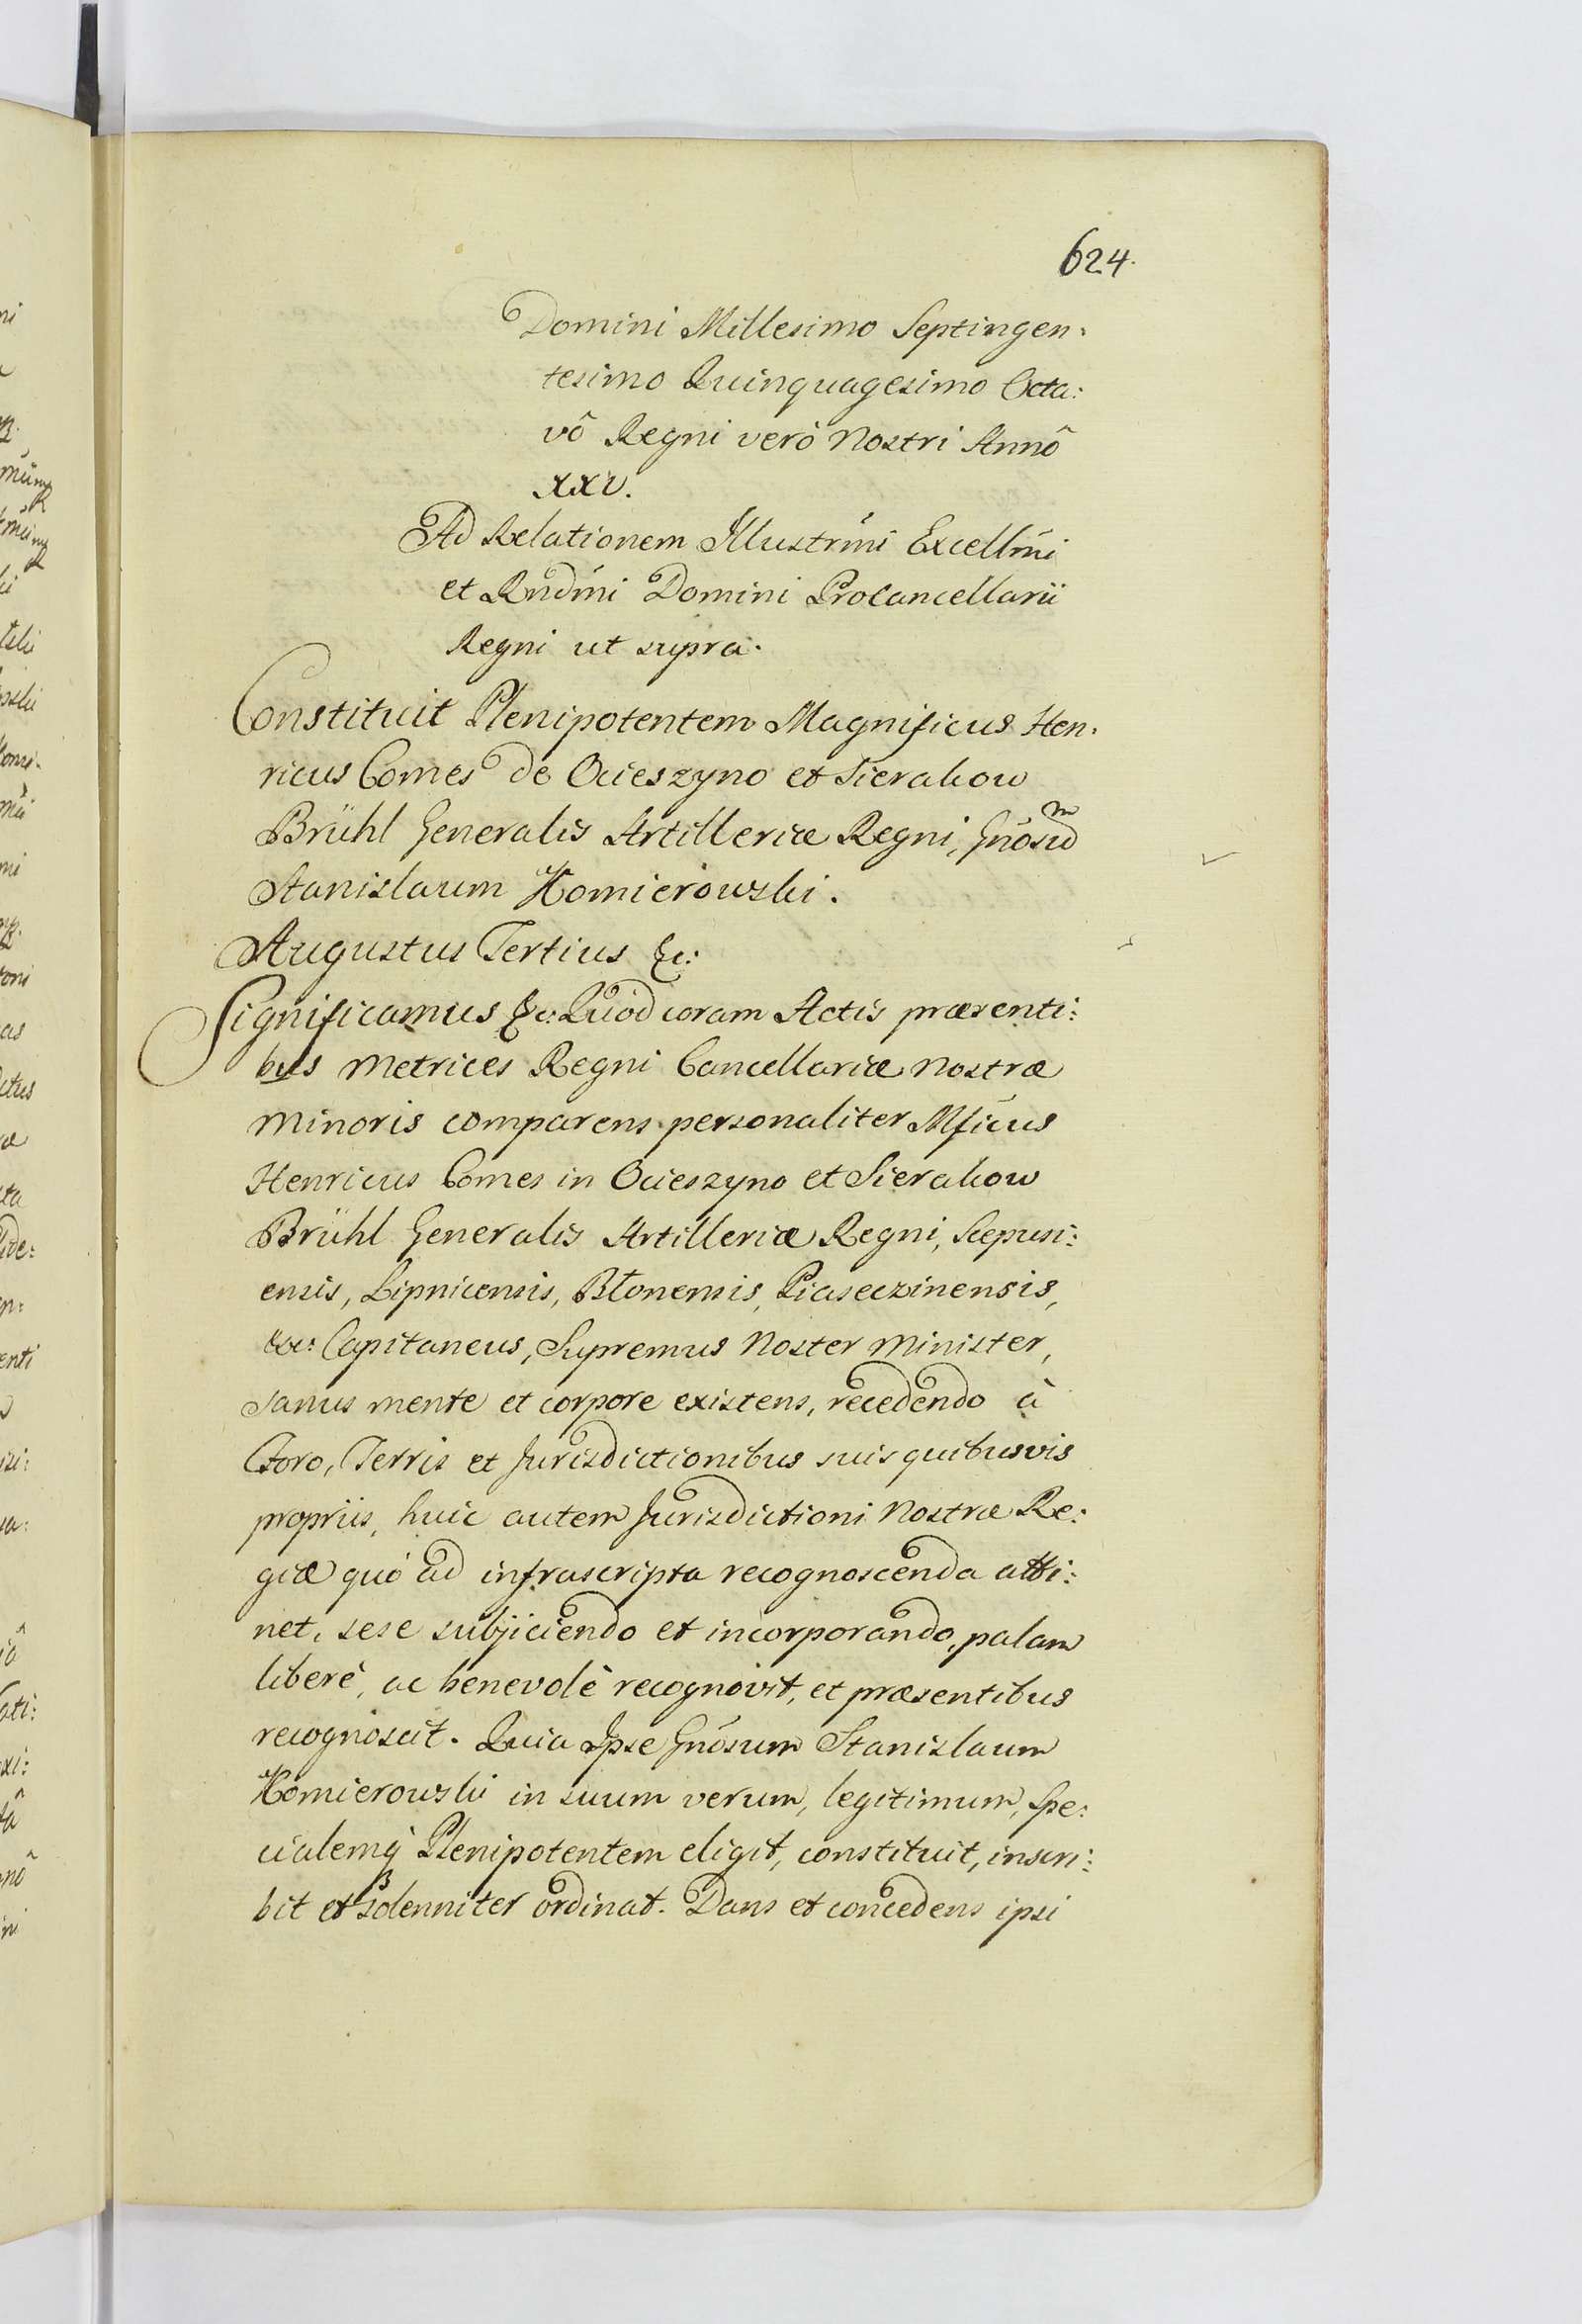 624.
Domini Millesimo Septingen:
tesimo Quinquagesimo Octa:
vô Regni verò Nostri Annô
XXV.
Ad Relationem Illustrm̃i Excellm̃i
et Rndm̃i Domini Procancellarii
Regni ut supra.
Constituit Plenipotentem Magnificus Hen:
ricus Comes de Ocieszyno et Sierakow
Brühl Generalis Artilleriæ Regni, Gñosũ
Stanislaum Komierowski.
Augustus Tertius &c:
Significamus &c: Quod coram Actis præsenti:
bus Metrices Regni Cancellariæ Nostræ
Minoris comparens personaliter Mficus
Henricus Comes in Ocieszyno et Sierakow
Brühl Generalis Artilleriæ Regni, Scepusi:
ensis, Lipnicensis, Błonensis, Piaseczinensis,
&c: Capitaneus, Supremus Noster Minister,
sanus mente et corpore existens, recedendo à
Foro, Terris et Jurisdictionibus suis quibusvis
propriis, huic autem Jurisdictioni Nostræ Re:
giæ quò ad infrascripta recognoscenda atti:
net, sese subjiciendo et incorporando, palam
liberè, ac benevolè recognovit, et præsentibus
recognoscit. Quia Ipse Gnósum Stanislaum
Komierowski in suum verum, legitimum, Spe:
cialemq́ Plenipotentem eligit, constituit, inscri:
bit et solenniter ordinat. Dans et concedens ipsi